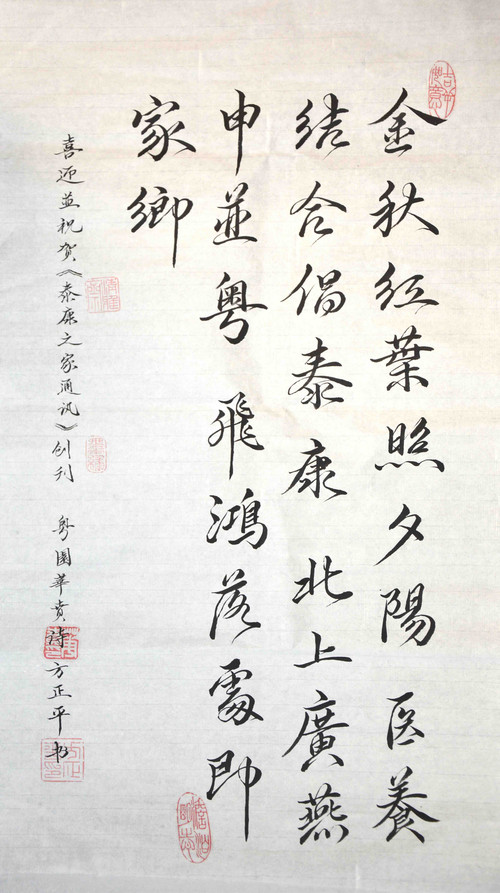 金秋红葉照夕陽 医養
结合倡泰康 北上廣燕
申並粤 飛鴻落處即
家鄉
喜迎並祝贺《泰康之家通讯》创刊 粤園華贲诗方正平书